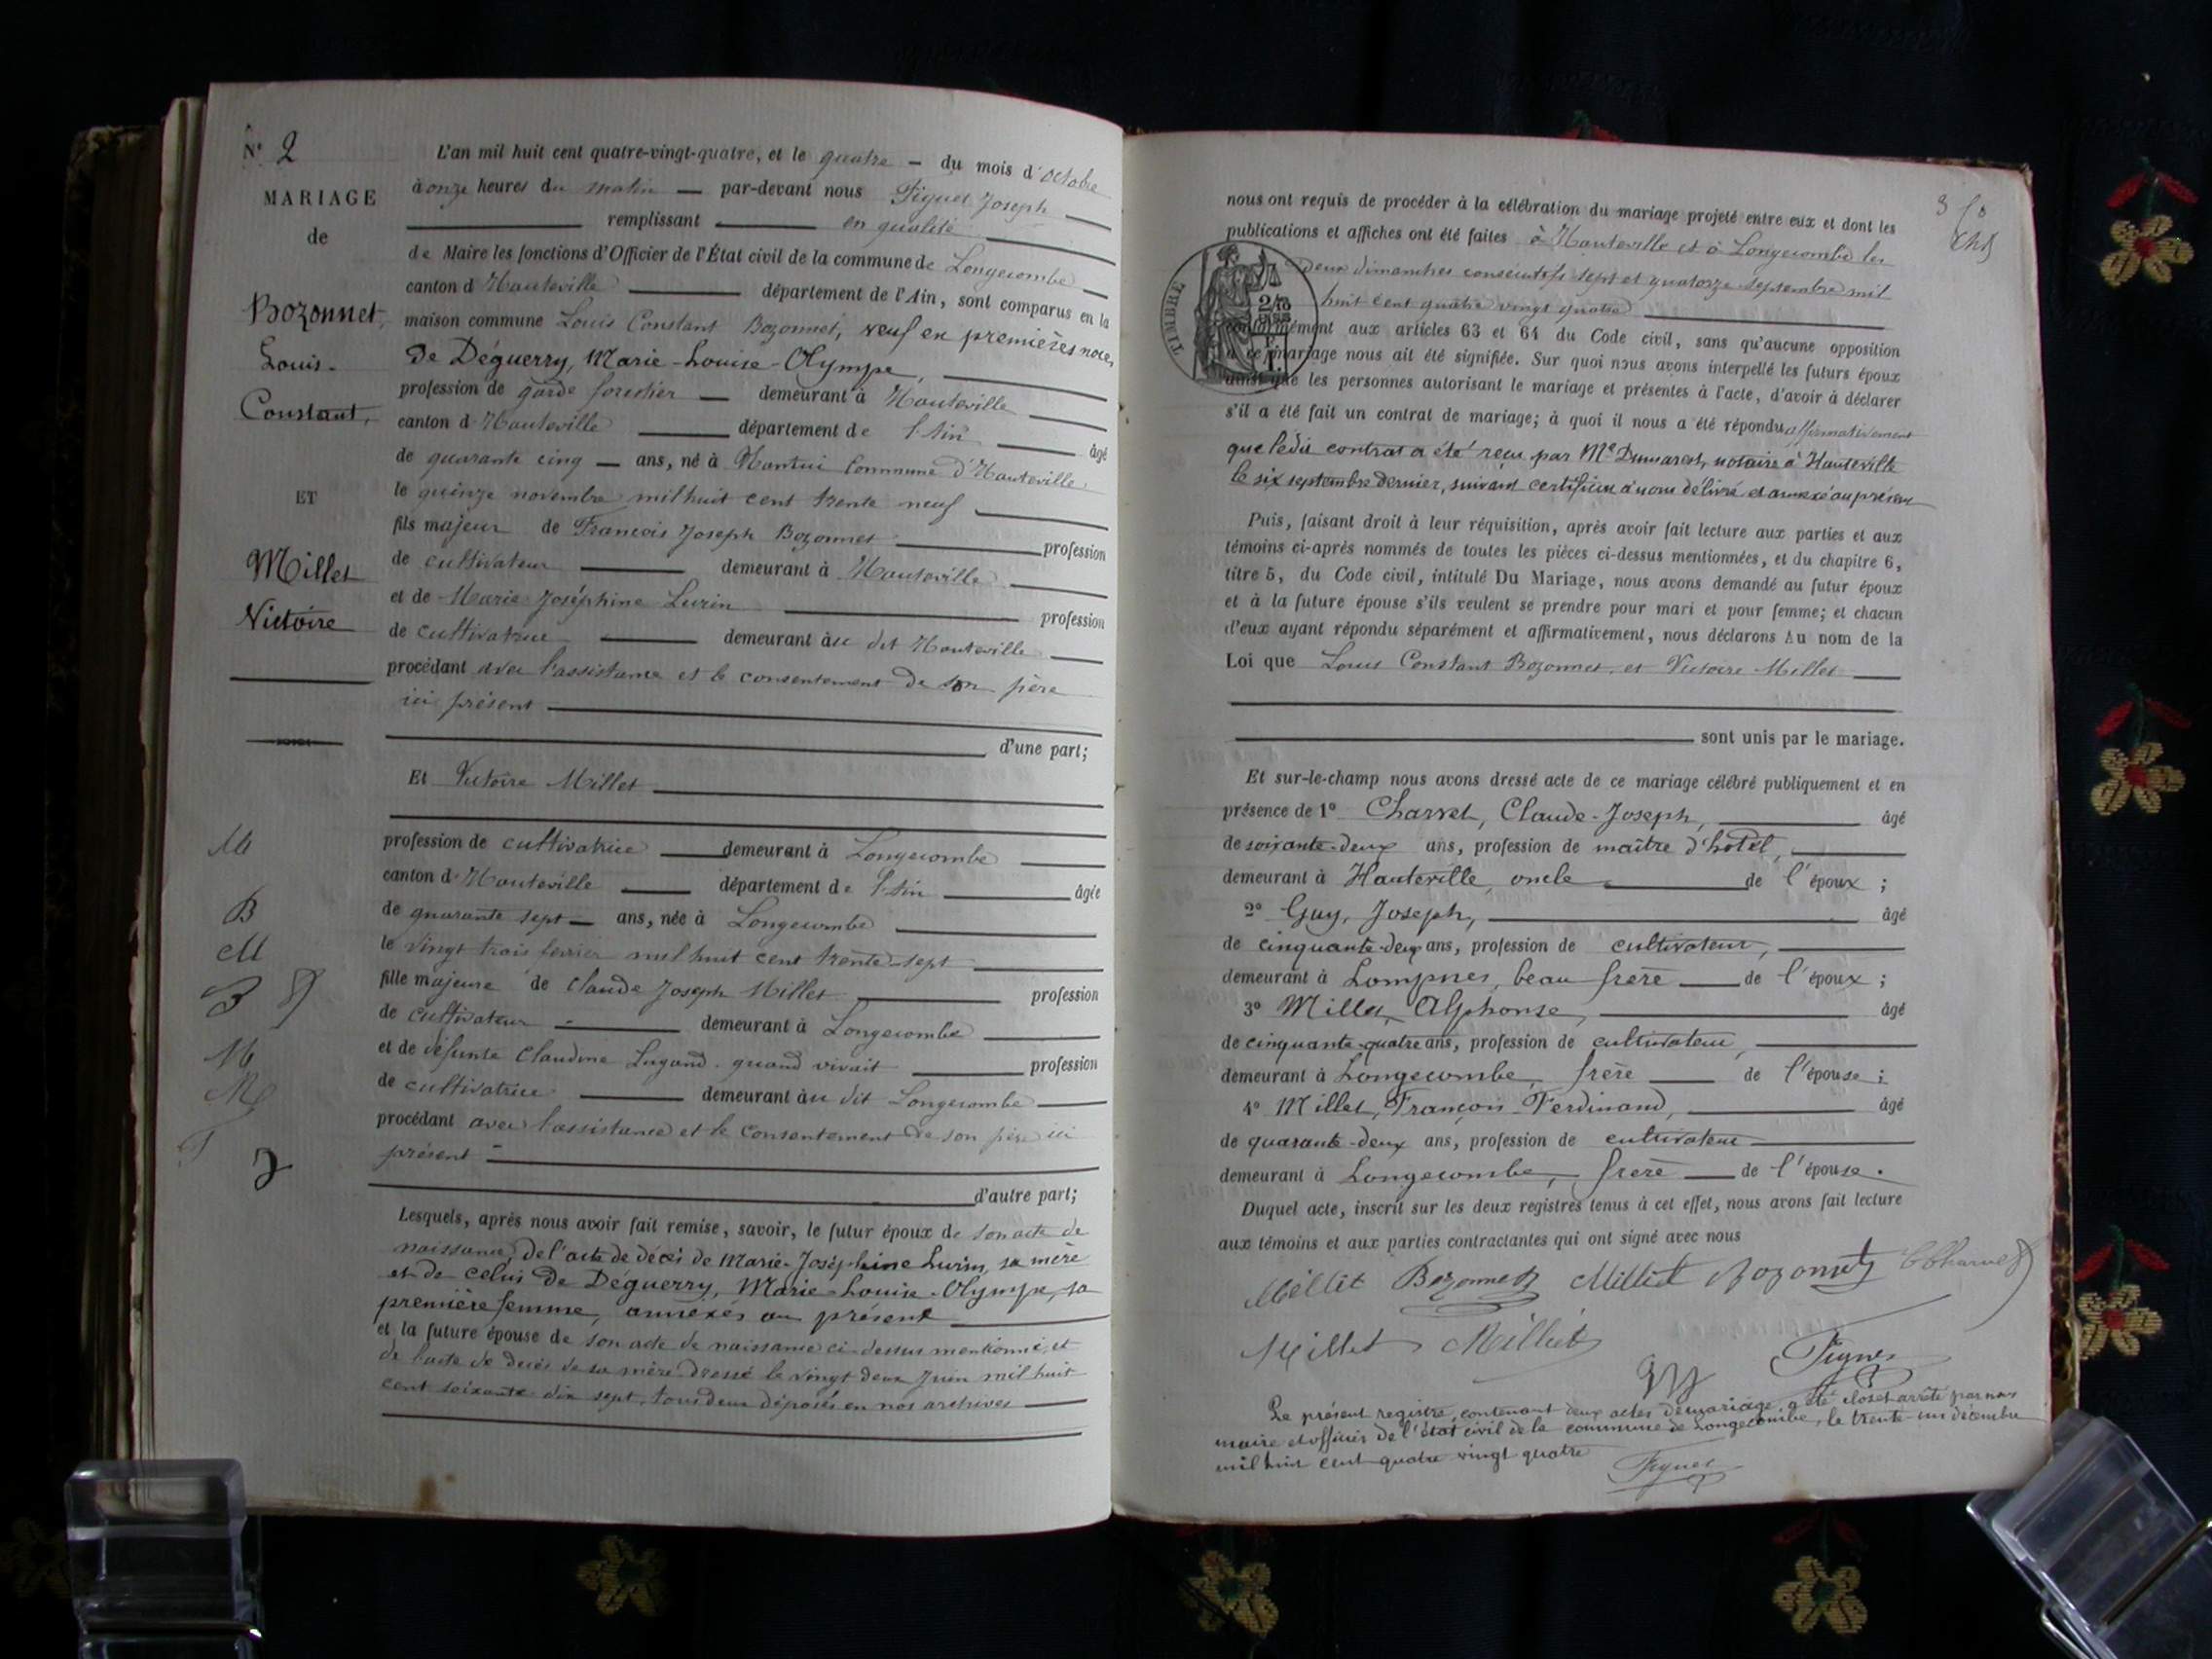 N° 2
MARIAGE
de
Bozonnet
Louis-
Constant,
ET
Millet
Victoire
L'an mil huit cent quatre-vingt-quatre, et le quatre — du mois d'octobre
à onze heures du matin — par-devant nous Figuet Joseph
remplissant en qualité
de Maire les fonctions d'Officier de l'État civil de la commune de Longecombe
canton d'Hauteville département de l'Ain, sont comparus en la
maison commune Louis Constant Bozonnet, veuf en premières noces
de Déguerry, Marie-Louise-Olympe,
profession de garde forestier — demeurant à Hauteville
canton d'Hauteville département de l'Ain âgé
de quarante cinq — ans, né à Commune d'Hauteville
le quinze novembre mil huit cent trente neuf
fils majeur de Francois Joseph Bozonnet profession
de cultivateur demeurant à Hauteville
et de Marie Joséphine Lurin profession
de cultivatrice demeurant au dit Hauteville
procédant avec l'assistance et le consentement de son père
ici présent
d'une part;
Et Victoire Millet
profession de cultivatrice demeurant à Longecombe
canton d'Hauteville département de l'Ain âgée
de quarante sept — ans, née à Longecombe
le vingt trois fevrier mil huit cent trente-sept
fille majeure de Claude Joseph Millet profession
de cultivateur demeurant à Longecombe
et de défunte Claudine Lugand quand vivait profession
de cultivatrice demeurant au dit Longecombe
procédant avec l'assistance et le consentement de son père ici
présent
d'autre part;
Lesquels, après nous avoir fait remise, savoir, le futur époux de son acte de
naissance, de l'acte de décès de Marie-Joséphine Lurin, sa mère
et de celui de Déguerry, Marie-Louise-Olympe, sa
première femme, annexés au présent
et la future épouse de son acte de naissance ci-dessus mentionné, et
de l'acte de décès de sa mère dressé le vingt deux Juin mil huit
cent soixante dix sept, tous deux déposés en nos archives
M
B
M
B
M
M
nous ont requis de procéder à la célébration du mariage projeté entre eux et dont les
publications et affiches ont été faites à Hauteville et à Longecombe les
deux dimanches consécutifs sept et quatorze septembre mil
huit cent quatre vingt quatre
TIMBRE
conformément aux articles 63 et 64 du Code civil, sans qu'aucune opposition
à ce mariage nous ait été signifiée. Sur quoi nous avons interpellé les futurs époux
ainsi que les personnes autorisant le mariage et présentes à l'acte, d'avoir à déclarer
s'il a été fait un contrat de mariage; à quoi il nous a été répondu affirmativement
que ledit contrat a été reçu par Me Dumarest, notaire à Hauteville
le six septembre dernier, suivant certificat à nous délivré et annexé au présent
Puis, faisant droit à leur réquisition, après avoir fait lecture aux parties et aux
témoins ci-après nommés de toutes les pièces ci-dessus mentionnées, et du chapitre 6,
titre 5, du Code civil, intitulé Du Mariage, nous avons demandé au futur époux
et à la future épouse s'ils veulent se prendre pour mari et pour femme; et chacun
d'eux ayant répondu séparément et affirmativement, nous déclarons Au nom de la
Loi que Louis Constant Bozonnet et Victoire Millet
sont unis par le mariage.
Et sur-le-champ nous avons dressé acte de ce mariage célébré publiquement et en
présence de 1° Charvet, Claude-Joseph, âgé
de soixante-deux ans, profession de maître d'hôtel,
demeurant à Hauteville, oncle de l'époux;
2° Guy, Joseph, âgé
de cinquante-deux ans, profession de cultivateur,
demeurant à Lompnes, beau frère de l'époux;
3° Millet, Alphonse, âgé
de cinquante-quatre ans, profession de cultivateur,
demeurant à Longecombe, frère de l'épouse;
4° Millet, François-Ferdinand, âgé
de quarante-deux ans, profession de cultivateur
demeurant à Longecombe, frère de l'épouse.
Duquel acte, inscrit sur les deux registres tenus à cet effet, nous avons fait lecture
aux témoins et aux parties contractantes qui ont signé avec nous
Millet Bozonnet Millet Bozonnet Charvet
Millet Millet
Guy Figuet
Le présent registre, contenant deux actes de mariage, a été clos et arrêté par nous
maire et officier de l'état civil de la commune de Longecombe, le trente-un décembre
mil huit cent quatre vingt quatre
Figuet